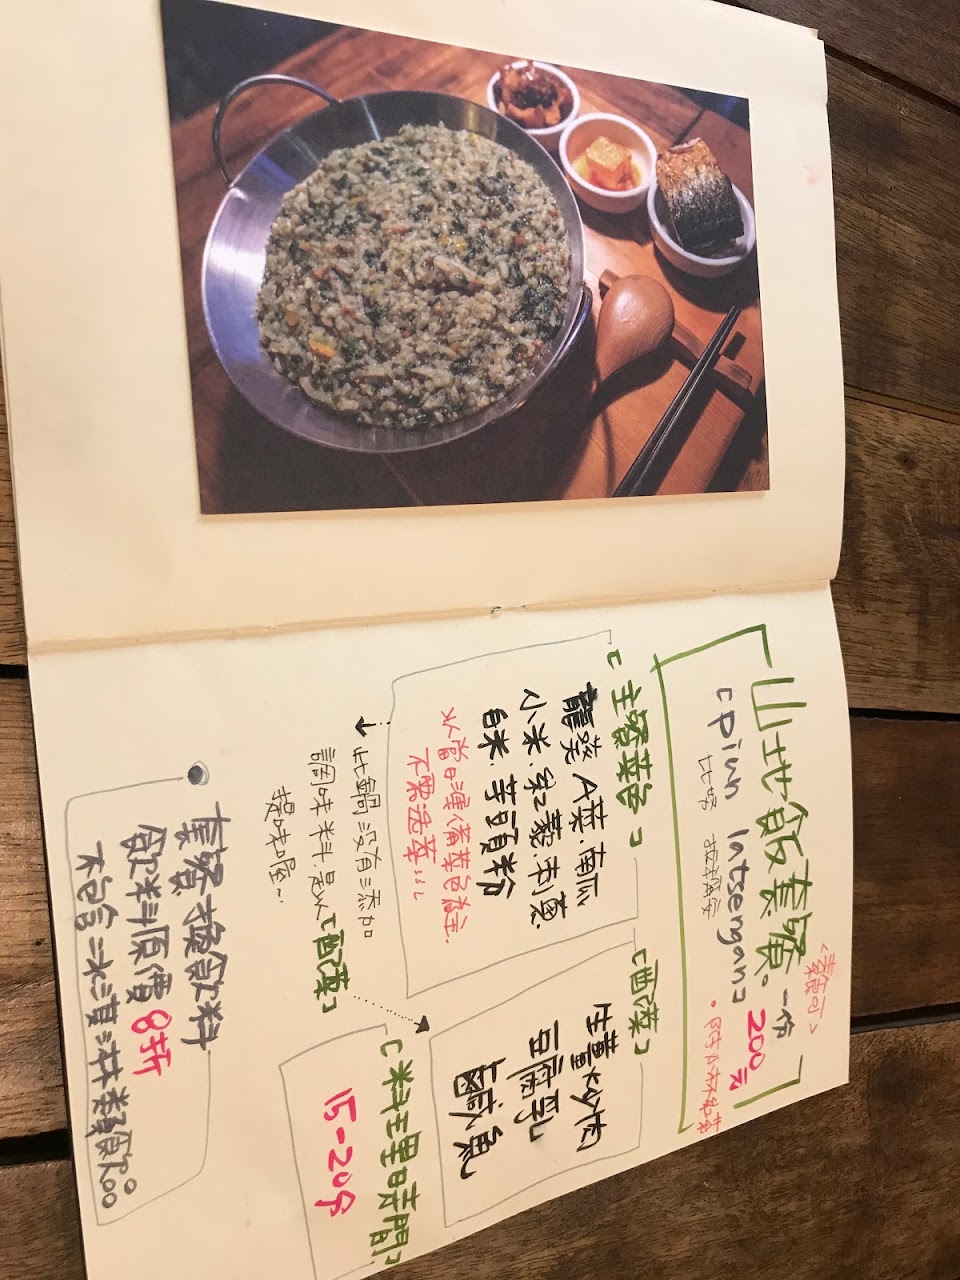 山地飯套餐。一份 200元
<素食可>
「piwn latsengan」
•附小杯船菜
「主餐菜色」
龍葵.A菜.南瓜
小米.紅藜.木鱉
白米.芋頭粉
以當日準備菜色為主.
不要選菜…
「配菜」
生薑炒肉
豆腐乳
鹹魚
↓此鍋沒有添加
調味料.是以「配菜」
提味喔~
「料理時間」
15-20分
套餐搭飲料
飲料原價8折
不包含冰淇淋類飲品